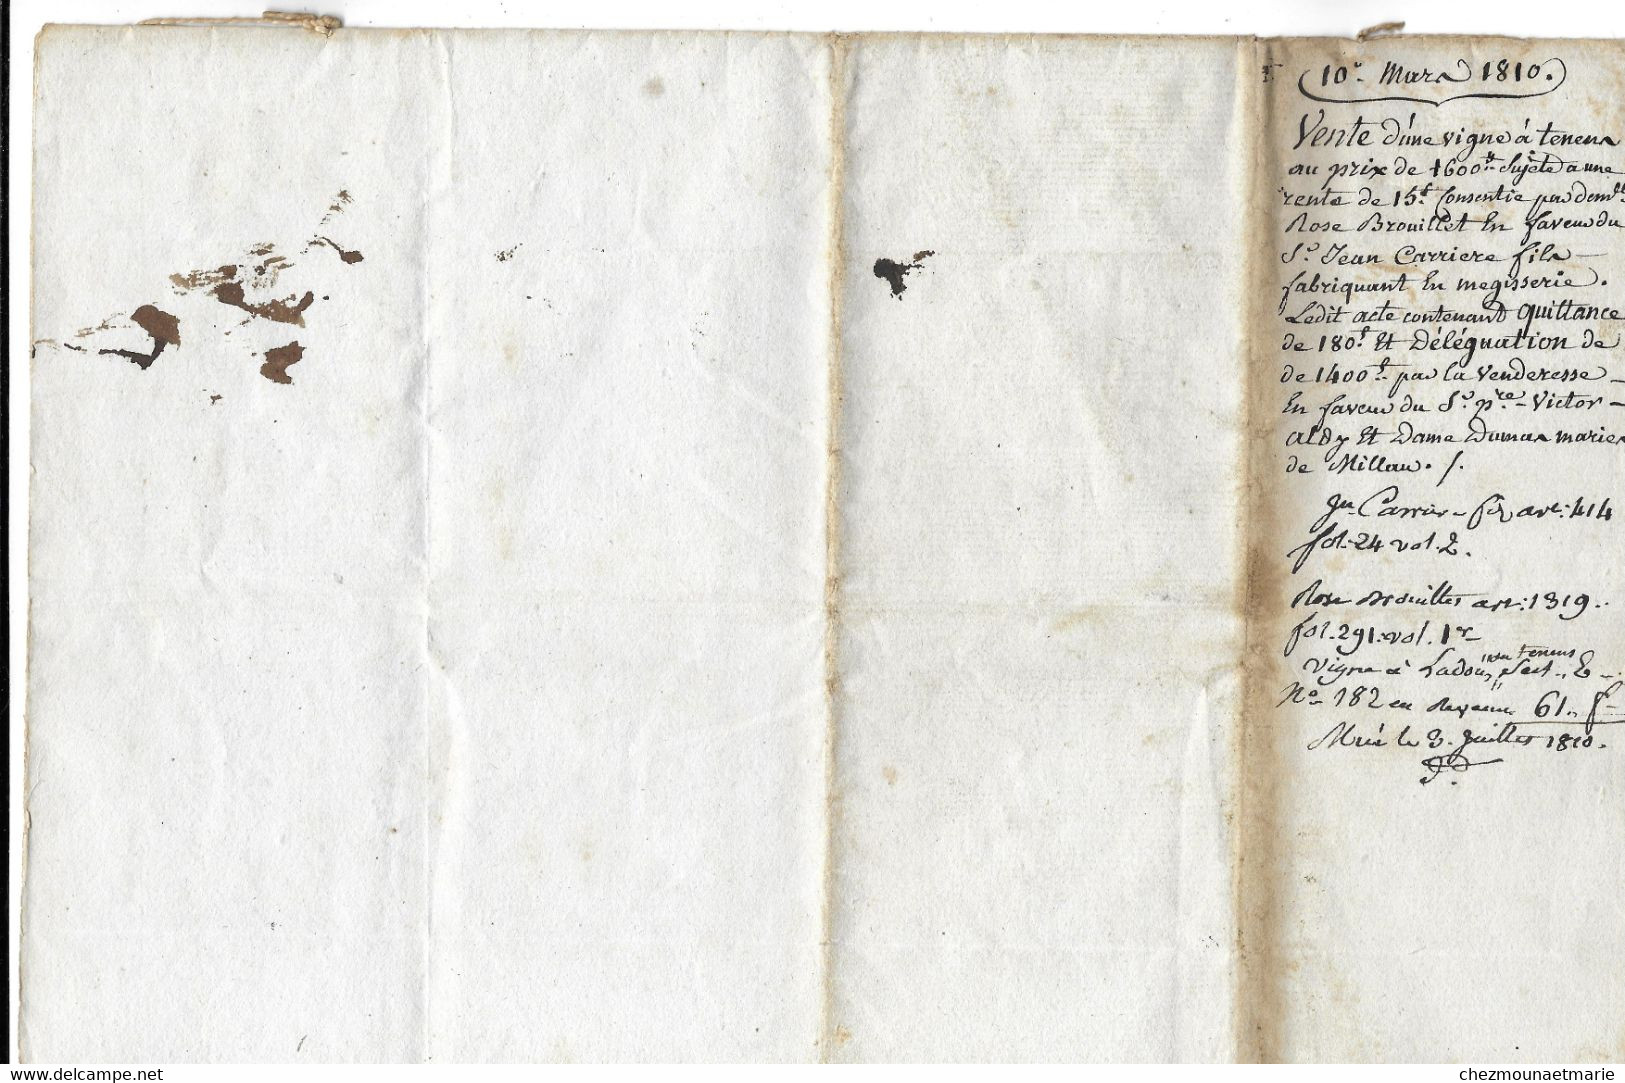 10e. Mars 1810.
Vente d'une vigne à tenens
au prix de 1600tt. Sujete a une
rente de 15f. Consentie par demlle
Rose Brouillet En faveur du
Sr. Jean Carriere fils —
fabriquant En megisserie.
Ledit acte contenant Quittance
de 180f. Et Délégation de
de 1400f. par la Venderesse —
En faveur du Sr. pre. Victor —
Aldy Et Dame Dumas mariés
de Millau. /.
Jn Carrier — fils art: 414
fol. 24 vol. 2.
Rose Brouillet art: 1319.
fol. 291. vol. 1er
ou tenens
Vigne à Ladoux Sect. E —
No. 182 en Revenu 61. f —
Mué le 3. Juillet 1810.
delcampe.net
chezmounaetmarie